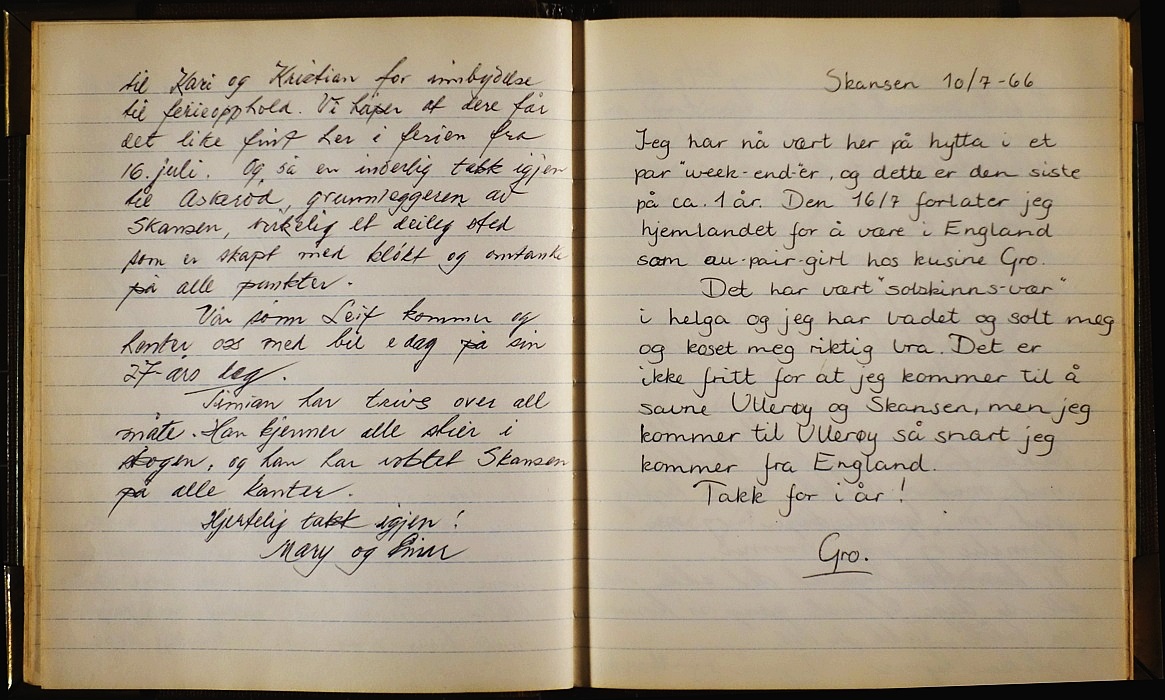 til Kari og Kristian for innbydelse
til ferieopphold. Vi håper at dere får
det like fint her i ferien fra
16. juli. Og så en inderlig takk igjen
til Askerød, grunnleggeren av
Skansen, virkelig et deilig sted
som er skapt med kløkt og omtanke
på alle punkter.
Vår sønn Leif kommer og
henter oss med bil idag på sin
27-års dag.
Timian har trivs over all
måte. Han kjenner alle stier i
skogen, og han har voktet Skansen
på alle kanter.
Hjertelig takk igjen!
Mary og Einar
Skansen 10/7-66
Jeg har nå vært her på hytta i et
par "week-end"er, og dette er den siste
på ca. 1 år. Den 16/7 forlater jeg
hjemlandet for å være i England
som au-pair-girl hos kusine Gro.
Det har vært "solskinns-vær"
i helga og jeg har badet og solt meg
og koset meg riktig bra. Det er
ikke fritt for at jeg kommer til å
savne Ullerøy og Skansen, men jeg
kommer til Ullerøy så snart jeg
kommer fra England.
Takk for i år!
Gro.